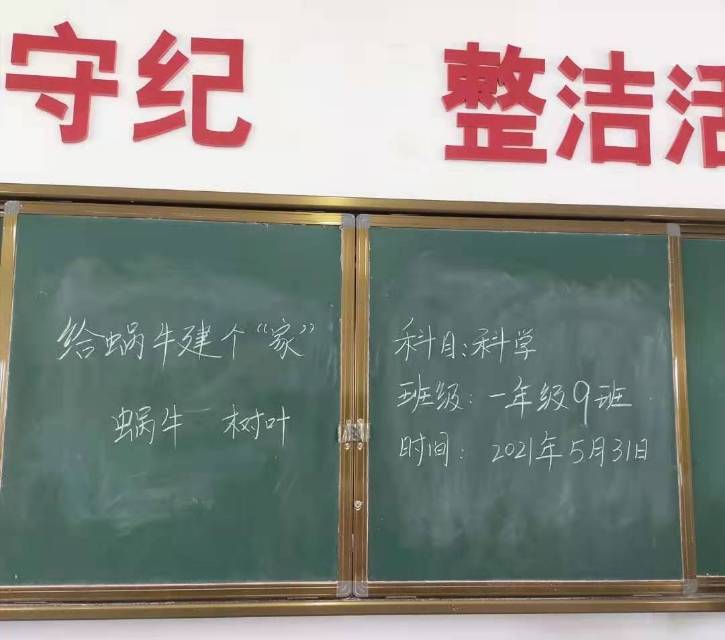 守纪 整洁活
给蜗牛建个“家”
蜗牛 树叶
科目:科学
班级：一年级9班
时间：2021年5月31日